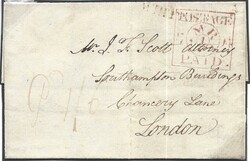 POSTAGE
PAID
Mr. J. T. Scott Attorney
Southampton Buildings
Chancery Lane
London